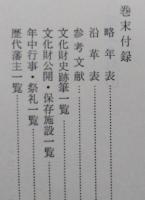 巻末付録
略年表
沿革表
参考文献
文化財史跡等一覧
文化財公開・保存施設一覧
年中行事・祭礼一覧
歴代藩主一覧